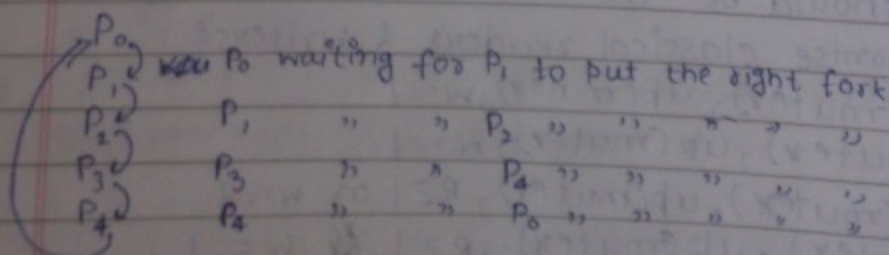 P0
P1 P0 waiting for P1 to put the right fork
P2 P1 " " P2 " " " " "
P3 P3 " " P4 " " " " "
P4 P4 " " P0 " " " " "